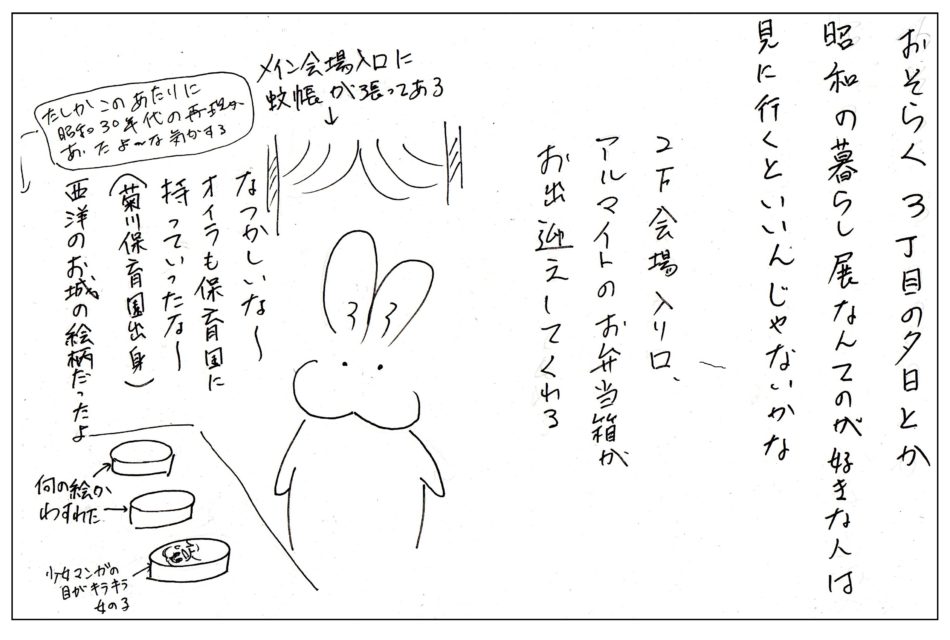 おそらく3丁目の夕日とか
昭和の暮らし展なんてのが好きな人は
見に行くといいんじゃないかな
2F会場入り口、
アルマイトのお弁当箱が
お出迎えしてくれる
メイン会場入口に
蚊帳が張ってある
↓
なつかしいな〜
オイラも保育園に
持っていったな〜
(菊川保育園出身)
西洋のお城の絵柄だったよ
たしかこのあたりに
昭和30年代の再現が
あったよ〜な気がする
何の絵か
わすれた
少女マンガの
目がキラキラ
女の子